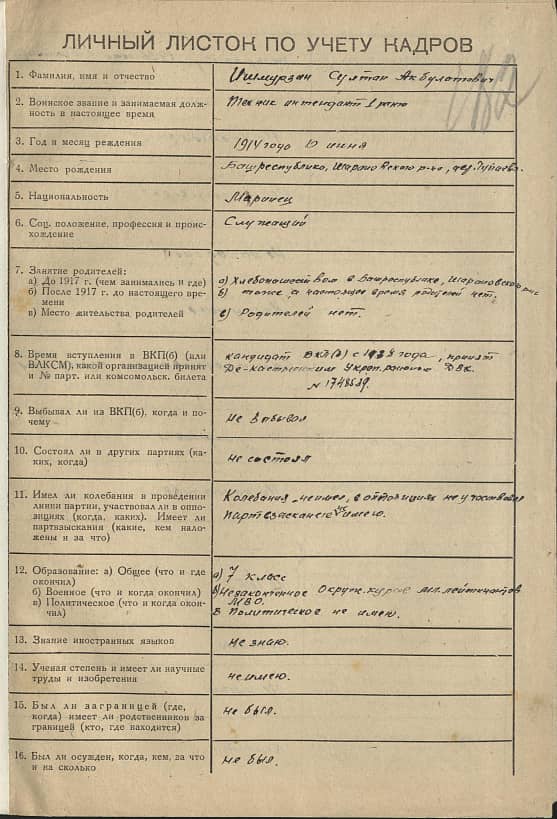 ЛИЧНЫЙ ЛИСТОК ПО УЧЕТУ КАДРОВ
182
1. Фамилия, имя и отчество
Ишмурзан Султан Акбулатович
2. Воинское звание и занимаемая долж-
ность в настоящее время
Техник интендант 1 ранга
3. Год и месяц реждения
1914 года 10 июня
4. Место рождения
Башреспублика, Шарановского р-на, дер.
5. Национальность
Мариец
6. Соц. положение, профессия и проис-
хождение
Служащий
7. Занятие родителей:
а) До 1917 г. (чем занимались и где)
б) После 1917 г. до настоящего вре-
мени
в) Место жительства родителей
а) Хлебопашеством в Башреспублике, Шарановского р-на
б) тоже а настоящее время родителей нет.
в) Родителей нет.
8. Время вступления в ВКП(б) (или
ВЛКСМ), какой организацией принят
и № парт. или комсомольск. билета
кандидат ВКП(б) с 1938 года, принят
Де-Кастринским Укреп. районом ДВК.
№ 1748539.
9. Выбывал ли из ВКП(б), когда и по-
чему
Не выбывал
10. Состоял ли в других партиях (ка-
ких, когда)
не состоял
11. Имел ли колебания в проведении
линии партии, участвовал ли в оппо-
зициях (когда, каких). Имеет ли
партвзыскания (какие, кем нало-
жены и за что)
Колебания не имел, в оппозициях не участвовал
Партвзыскание не имею.
12. Образование: а) Общее (что и где
окончил)
б) Военное (что и когда окончил)
в) Политическое (что и когда окон-
чил)
а) 7 класс
б) Незаконченное Окруж. курсы мл. лейтенантов
МВО.
в Политическое не имею.
13. Знание иностранных языков
не знаю.
14. Ученая степень и имеет ли научные
труды и изобретения
не имею.
15. Был ли заграницей (где,
когда) имеет ли родственников за
границей (кто, где находится)
не был.
16. Был ли осужден, когда, кем, за что
и на сколько
не был.